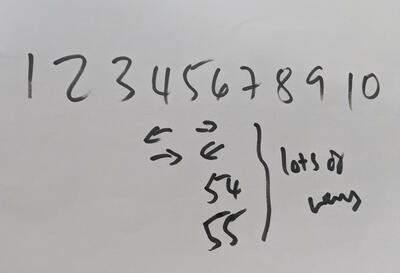 1 2 3 4 5 6 7 8 9 10
← →
→ ←
54
55
lots of